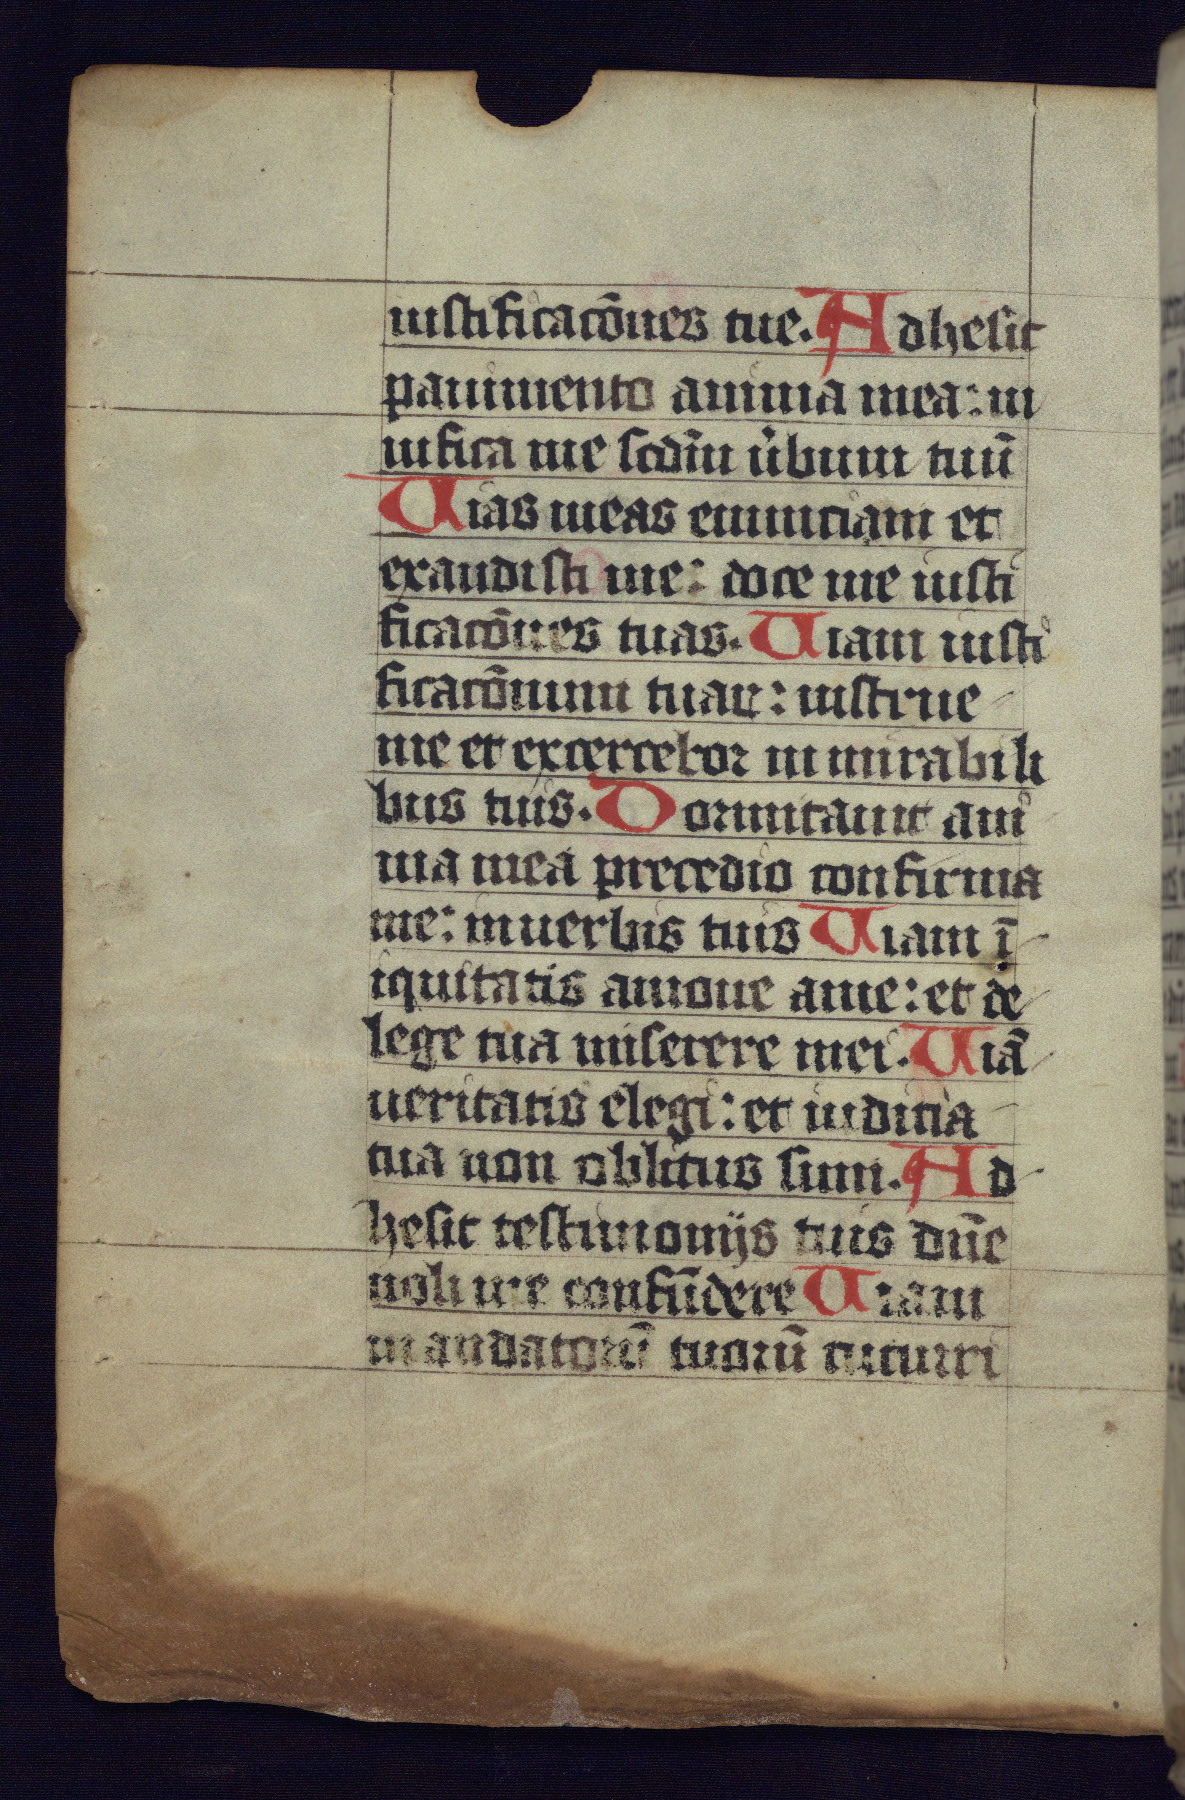 iustificacōnes tue. Adhesit
pauimento anima mea: ui
uifica me scdm̄ u̓bum tuū
Uias meas enunciaui et
exaudisti me: doce me iusti
ficacōnes tuas. Uiam iusti
ficacōnum tuaꝝ: instrue
me et excercebor in mirabili
bus tuis. Dormitauit ani
ma mea pretedio confirma
me: in uerbis tuis Uiam ī
iquitatis amoue ame: et de
lege tua miserere mei. Uiā
ueritatis elegi: et iudicia
tua non oblitus sum. Ad
hesit testimonijs tuis dn̄e
noli me confūdere Uiam
mandatorū tuorū cucurri